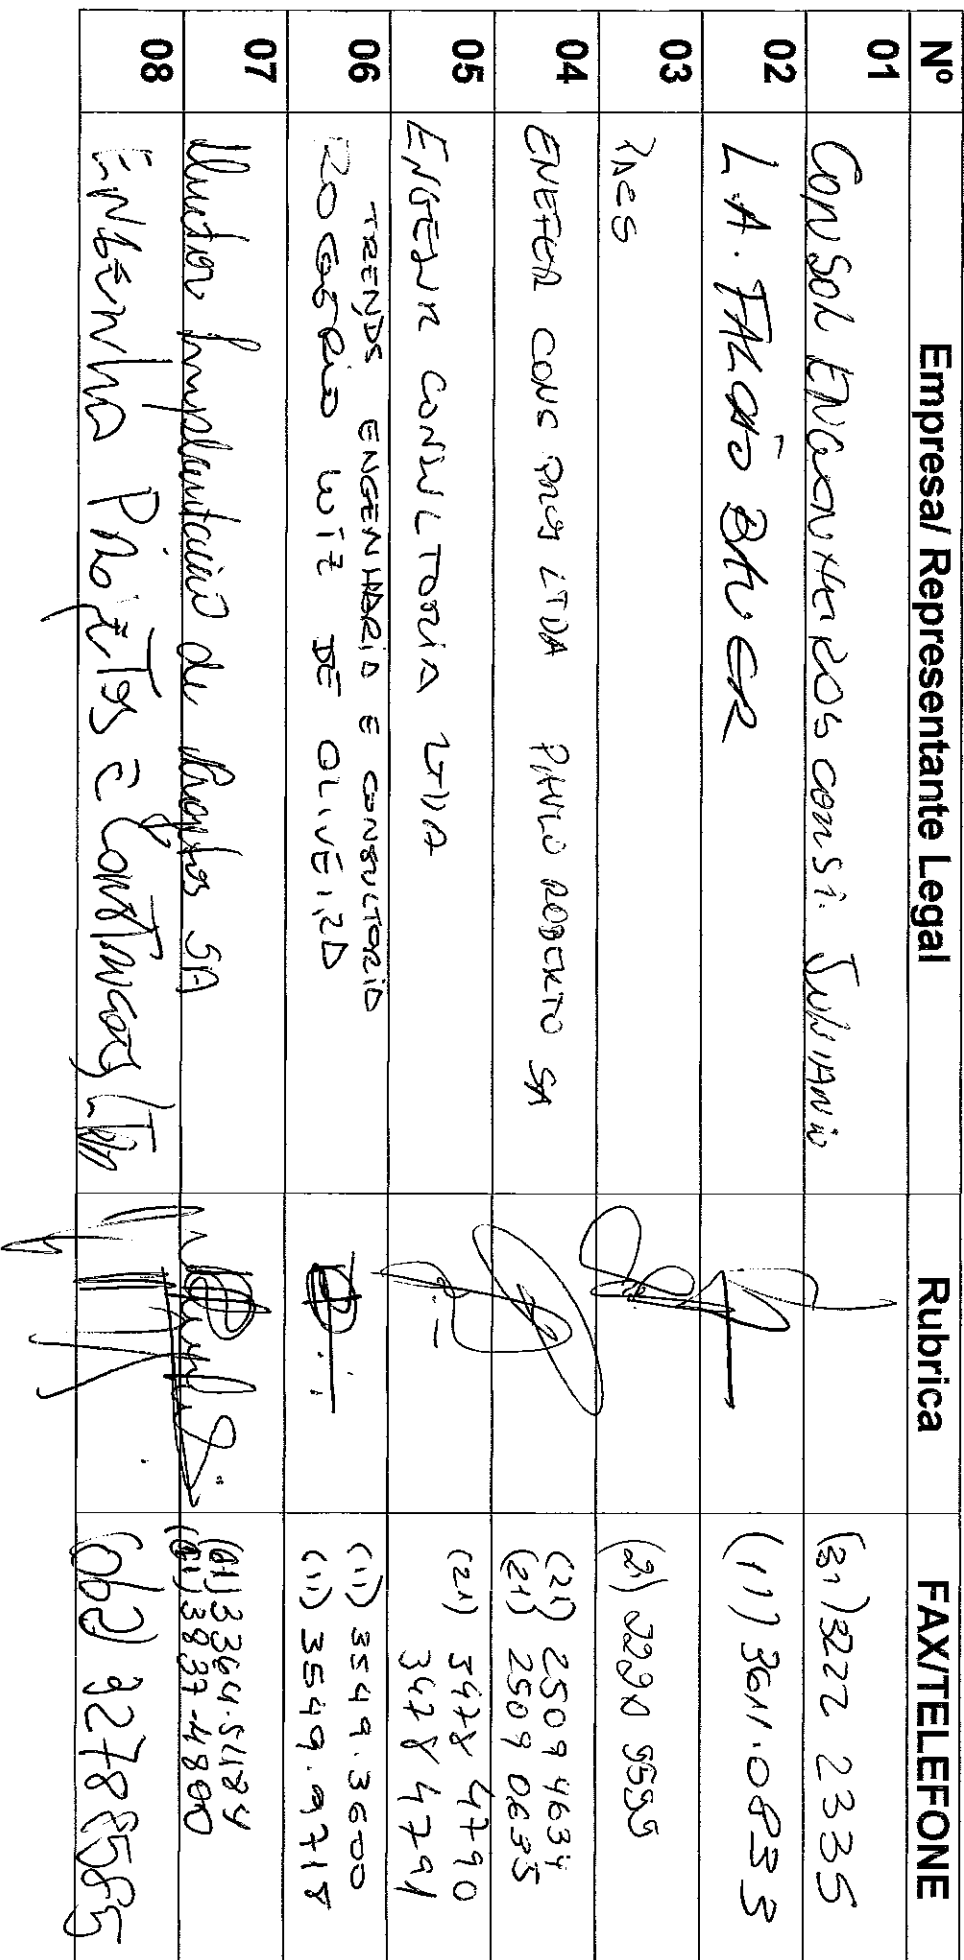 Nº Empresa/ Representante Legal Rubrica FAX/TELEFONE
01 Consol ENGENHEIROS CONSS. JULIANO (31) 3222 2335
02 L.A. FALCÃO BAUER (11) 3611.0833
03 (21)
04 ENEFER CONS PROJ LTDA PAULO ROBERTO SA (21) 2509 4634
(21) 2509 0635
05 ENGESUR CONSULTORIA LTDA (21) 3478 4790
3478 4791
06 TRENDS ENGENHARIA E CONSULTORIA (11) 3549.3600
ROGÉRIO WIZ DE OLIVEIRA (11) 3549.9718
07 Implantación de SA (61) 3364.5484
(61) 3837-4800
08 Projetos e Construções LTDA 92788585